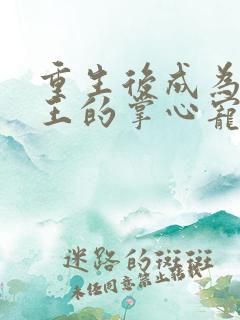 重生後成為
王的掌心寵
迷路的斑斑
未任同意禁止轉載